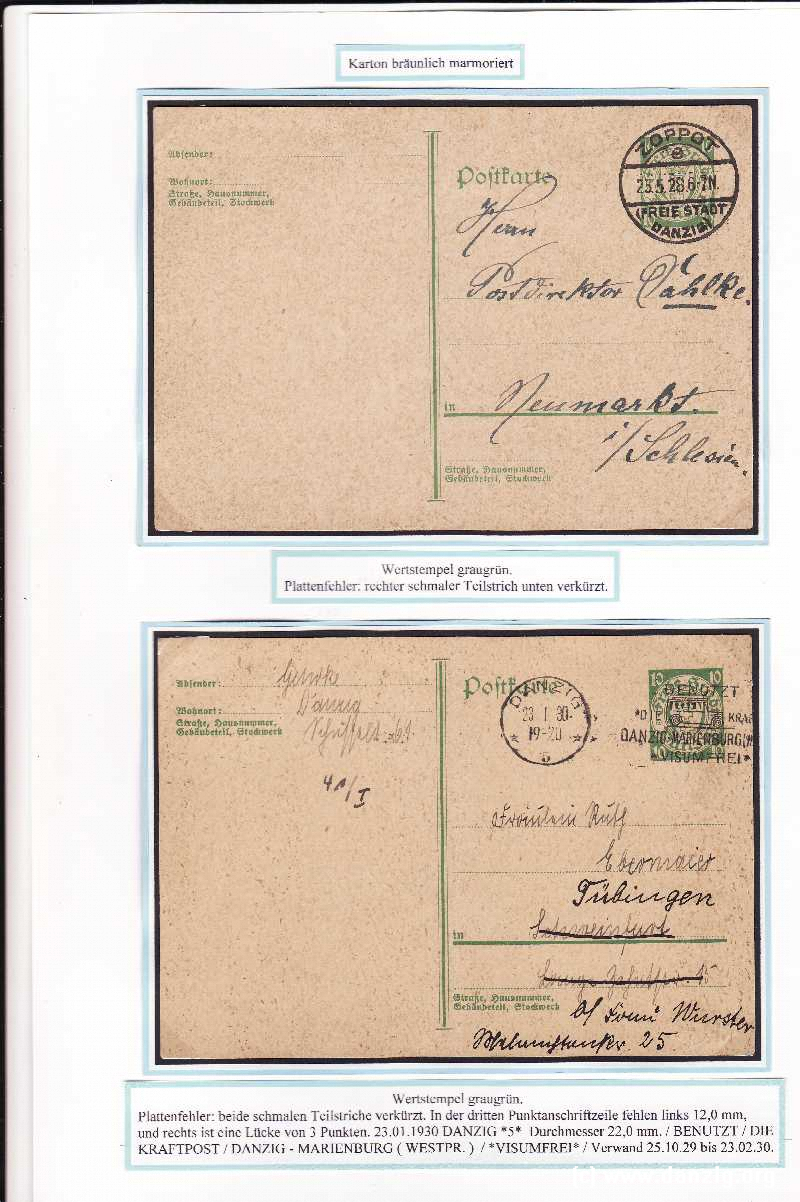 Karton bräunlich marmoriert
Absender:
Wohnort:
Straße, Hausnummer,
Gebäudeteil, Stockwerk
Postkarte
ZOPPOT
e
23.5.28.6-7N.
(FREIE STADT
DANZIG)
Herrn
Postdirektor Dählke.
in Neumarkt.
i/Schlesien.
Straße, Hausnummer,
Gebäudeteil, Stockwerk
Wertstempel graugrün.
Plattenfehler: rechter schmaler Teilstrich unten verkürzt.
Absender:
Wohnort: Danzig
Straße, Hausnummer,
Gebäudeteil, Stockwerk
Postkarte
DANZIG
23.1.30.
19-20
* 5 *
10 10
BENUTZT
*DIE KRAF
DANZIG-MARIENBURG(W
*VISUMFREI*
10 10
Fräulein Ruth
Ebermaier
Tübingen
in Schweinfurt
b/ Frau Wurster
25
Straße, Hausnummer,
Gebäudeteil, Stockwerk
Wertstempel graugrün.
Plattenfehler: beide schmalen Teilstriche verkürzt. In der dritten Punktanschriftzeile fehlen links 12,0 mm,
und rechts ist eine Lücke von 3 Punkten. 23.01.1930 DANZIG *5* Durchmesser 22,0 mm. / BENUTZT / DIE
KRAFTPOST / DANZIG - MARIENBURG ( WESTPR. ) / *VISUMFREI* / Verwand 25.10.29 bis 23.02.30.
(c) www.danzig.org